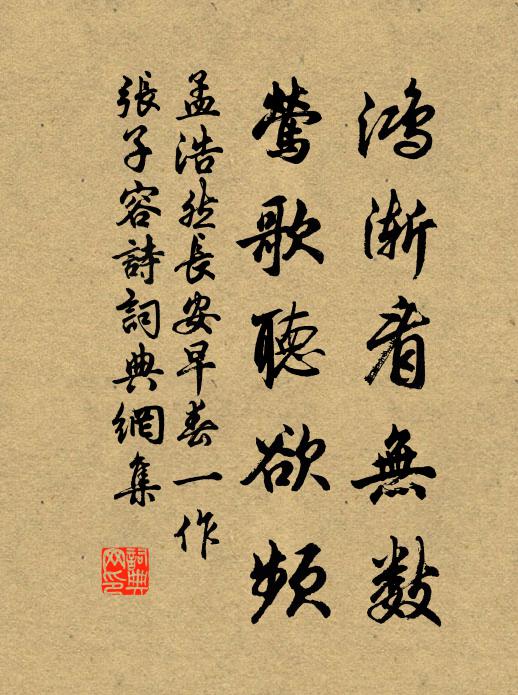 鴻漸看無數
鶯歌聽欲頻
孟浩然長安早春一作
張子容詩詞典網集
詞典网印